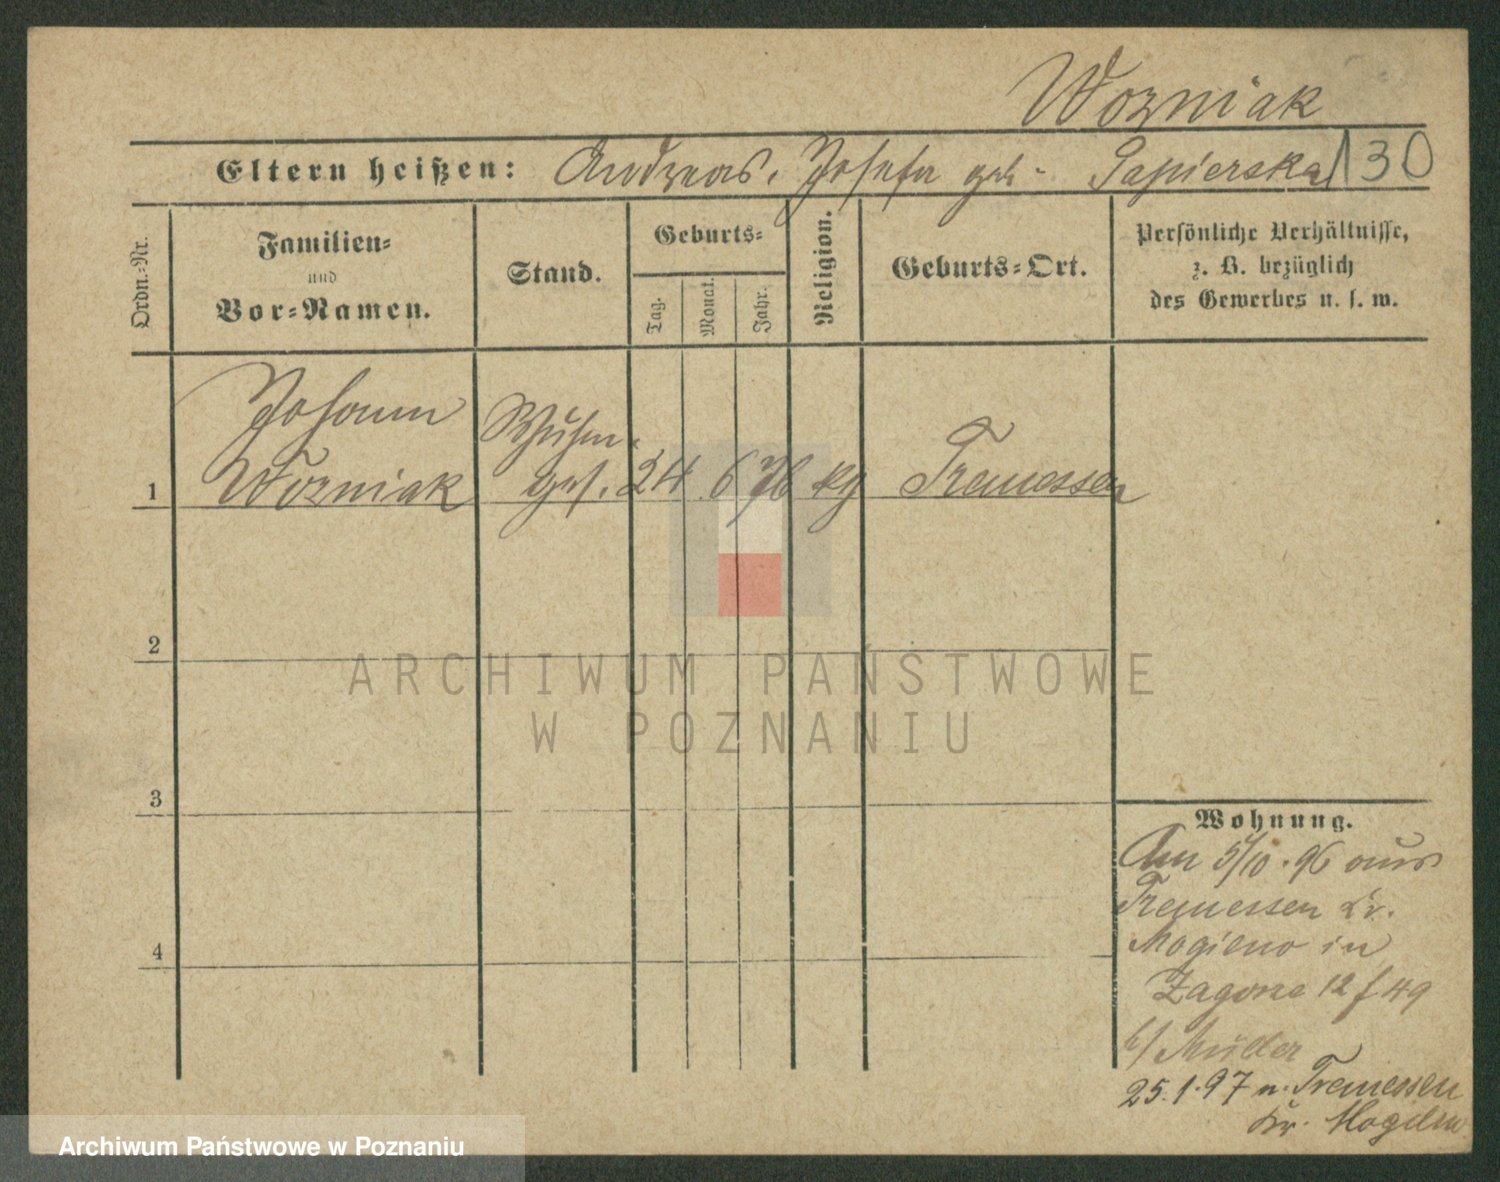 Wozniak
Eltern heißen: Andreas, Josefa geb. Papierska 130
Ordn.-Nr.
Familien-
und
Vor-Namen.
Stand.
Geburts-
Tag.
Monat.
Jahr.
Religion.
Geburts-Ort.
Persönliche Verhältnisse,
z. B. bezüglich
des Gewerbes u. s. w.
Johann
Wozniak
Schuhm.
ges.
1
24 6 76 kg Tremessen
2
3
4
Wohnung.
Am 5/10.96 aus
Tremessen Kr.
Mogilno in
Zagorze 12 f 49
b/ Müller
25.1.97 n. Tremessen
Kr. Mogilno
ARCHIWUM PAŃSTWOWE
W POZNANIU
Archiwum Państwowe w Poznaniu